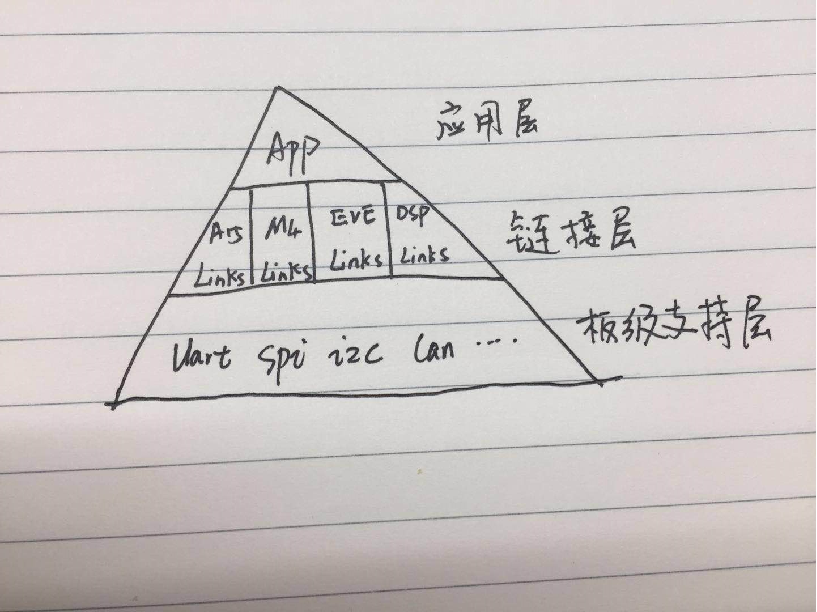 App
应用层
A15 M4 EVE DSP
Links Links Links Links
链接层
Uart spi i2c Can ....
板级支持层